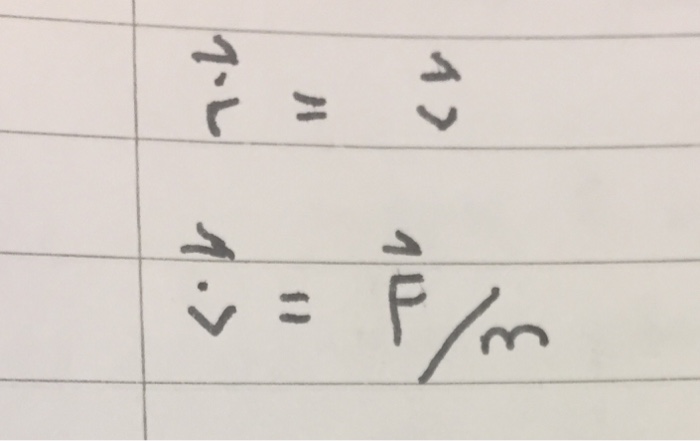 $\dot{\vec{r}} = \vec{v}$
$\dot{\vec{v}} = \vec{F}/m$